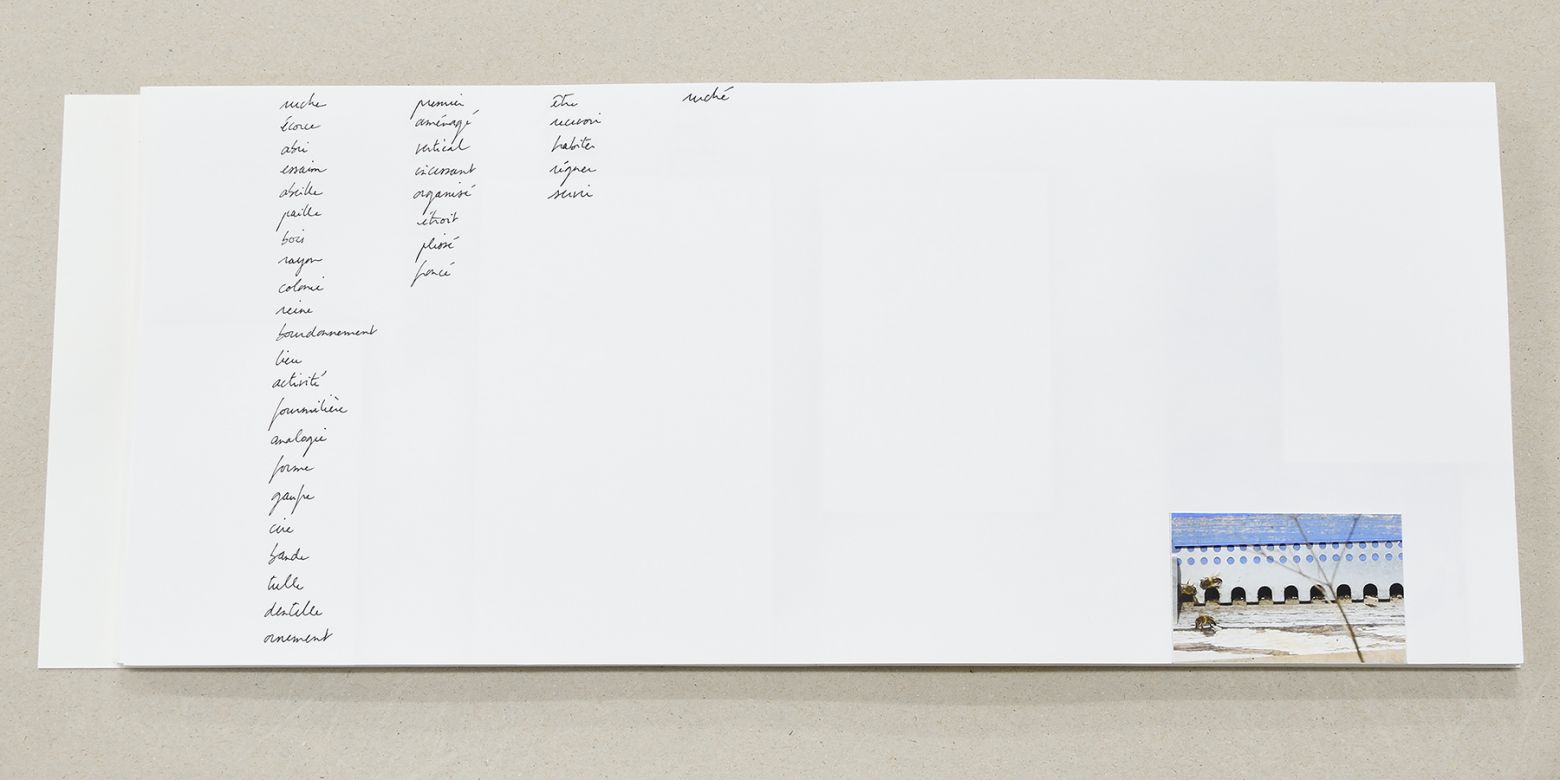 ruche
écorce
abri
essaim
abeille
paille
bois
rayon
colonie
reine
bourdonnement
lieu
activité
fourmilière
analogie
forme
gaufre
cire
bande
tulle
dentelle
ornement
premier
aménagé
vertical
incessant
organisé
étroit
plissé
froncé
être
recevoir
habiter
régner
suivi
ruché